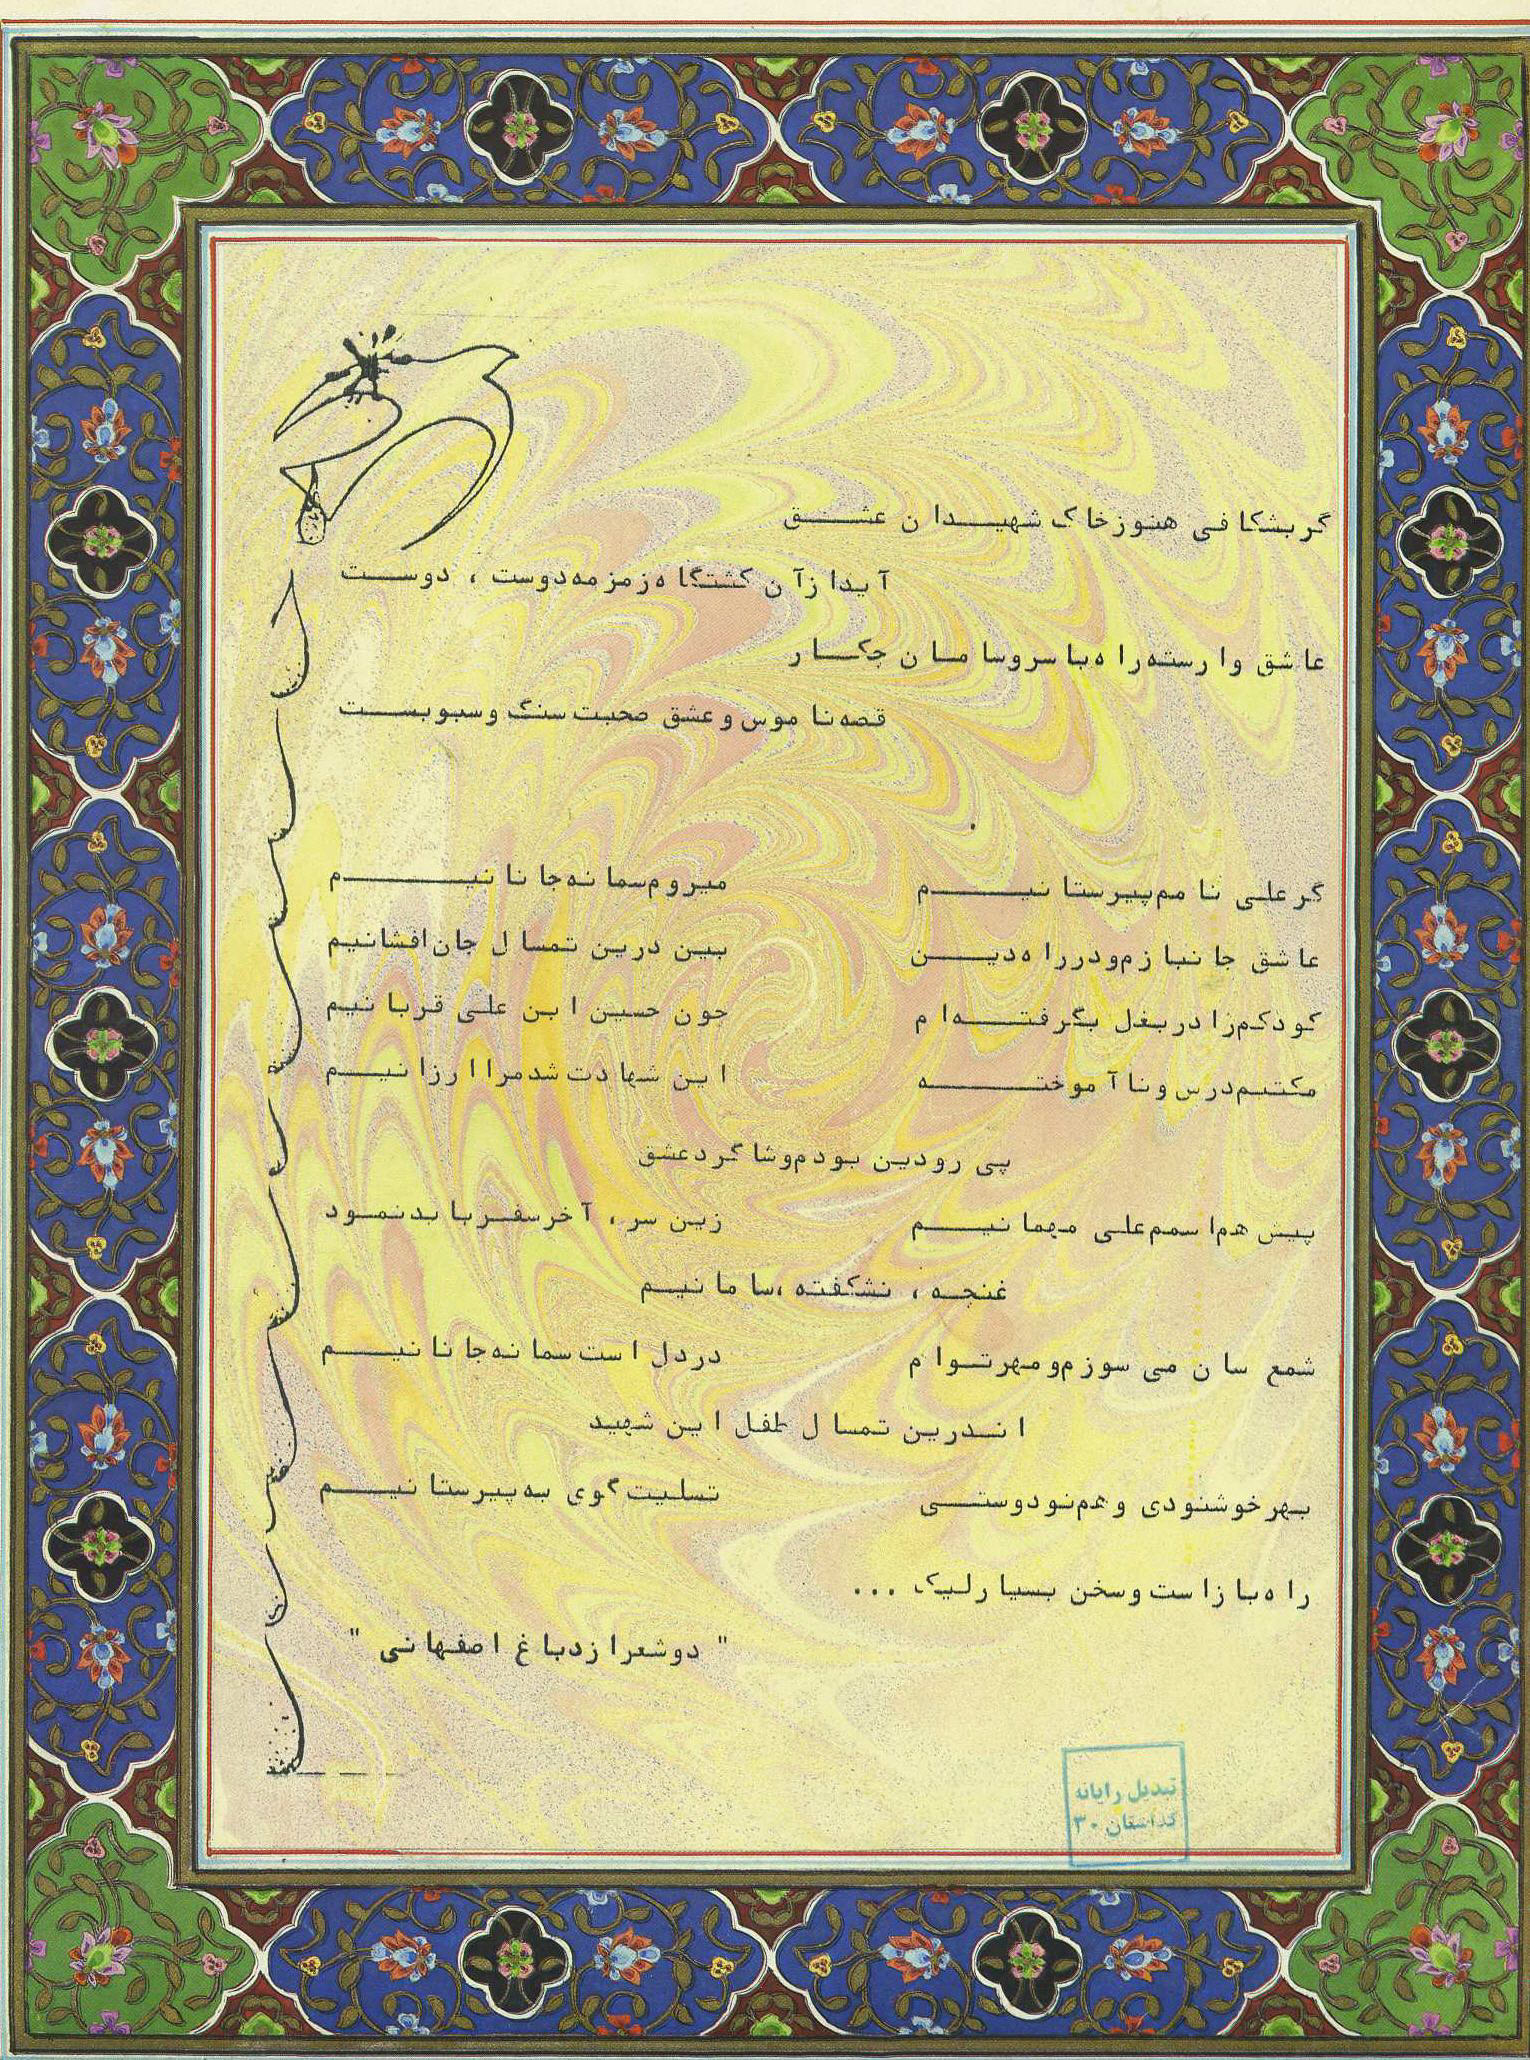 گر بشکافی هنوز خاک شهیدان عشق
آید از آن کشتگاه زمزمه دوست ، دوست
عاشق وارسته را با سر و سامان چکار
قصه ناموس و عشق صحبت سنگ و سبوست
گر علی نامم پیرستانیم
میروم سمانه جانانیم
عاشق جانبازم و در راه دین
بین درین تمسال جان افشانیم
کودکم را در بغل بگرفته ام
چون حسین ابن علی قربانیم
مکتبم درس ونا آموخته
این شهادت شد مرا ارزانیم
پی رو دین بودم و شاگرد عشق
پیش هم اسمم علی مهمانیم
زین سر ، آخر سفر باید نمود
غنچه ، نشکفته ،سامانیم
شمع سان می سوزم و مهر توام
در دل است سمانه جانانیم
اندرین تمسال طفل این شهید
بهر خوشنودی و هم نودوستی
تسلیت گوی به پیرستانیم
راه باز است و سخن بسیار لیک ...
" دو شعر از دباغ اصفهانی "
تبدیل رایانه
۳۰